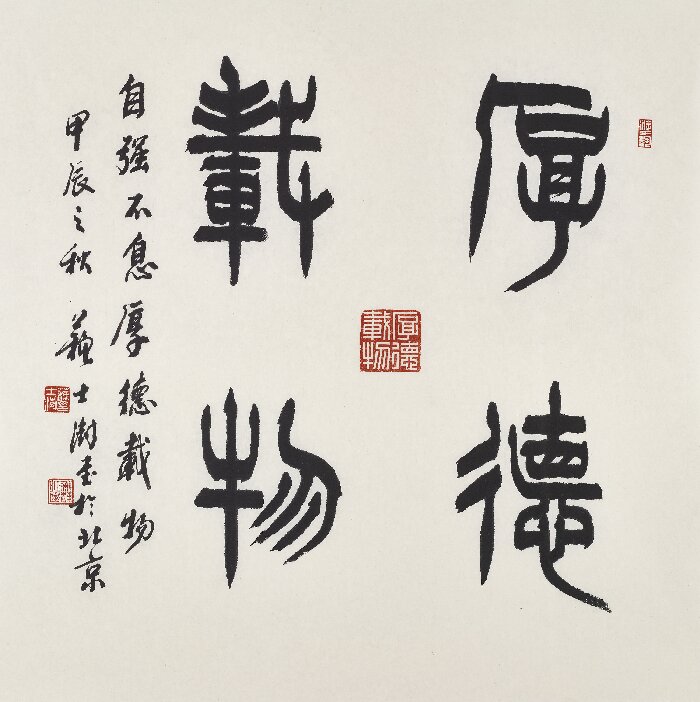 厚德
載物
自強不息厚德載物
甲辰之秋蘇士澍書於北京
厚德
載物